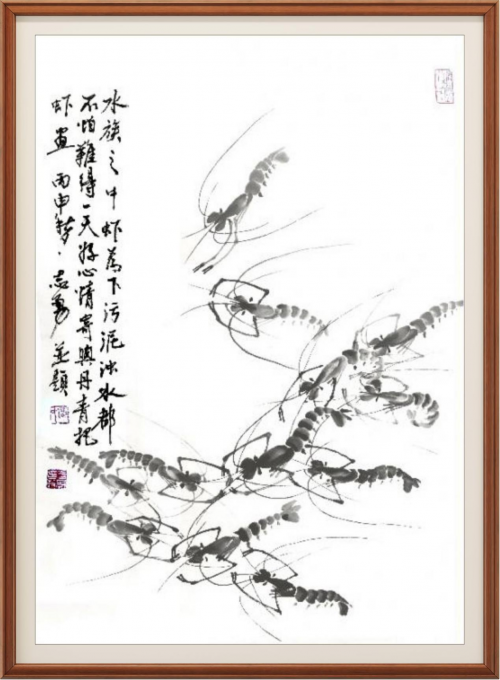 水族之中虾为下污泥浊水都
不怕难得一天好心情寄与丹青把
虾画 丙申 志勇并题